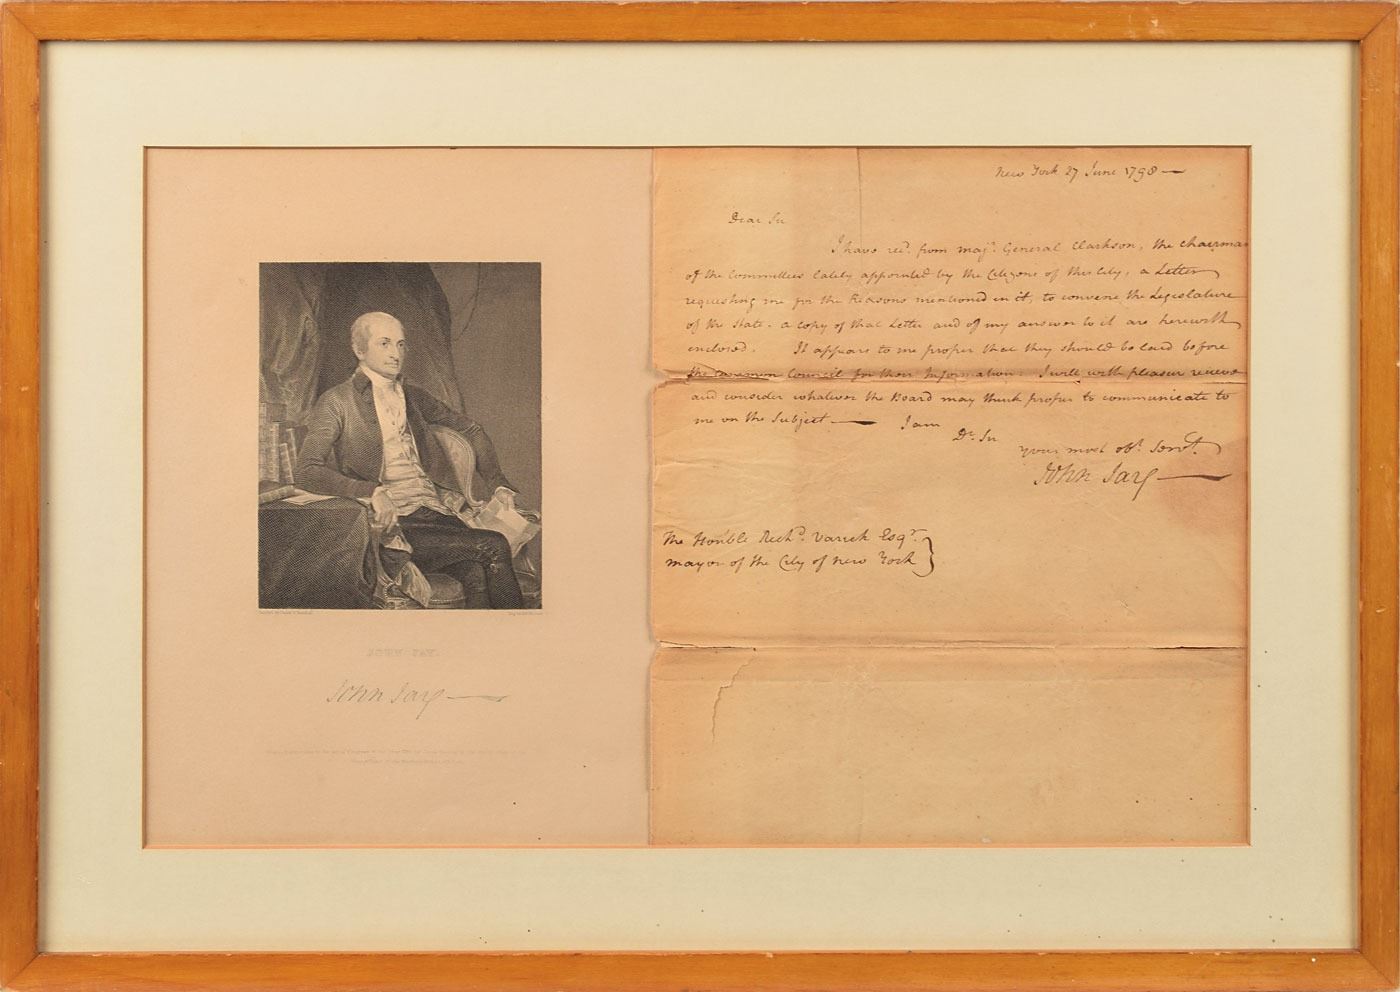 New York 27 June 1798 —
Dear Sir
I have recd. from majr. General Clarkson, the chairman
of the Committee lately appointed by the Citizens of this City, a Letter
requesting me for the Reasons mentioned in it, to convene the Legislature
of the State. a copy of that Letter and of my answer to it are herewith
enclosed. It appears to me proper that they should be laid before
the common Council for their Information. I will with pleasure recieve
and consider whatever the Board may think proper to communicate to
me on the Subject — I am
Dr. Sir
your most obt. Servt.
John Jay —
The Honble Richd. Varick Esqr.
mayor of the City of new York
JOHN JAY.
John Jay —